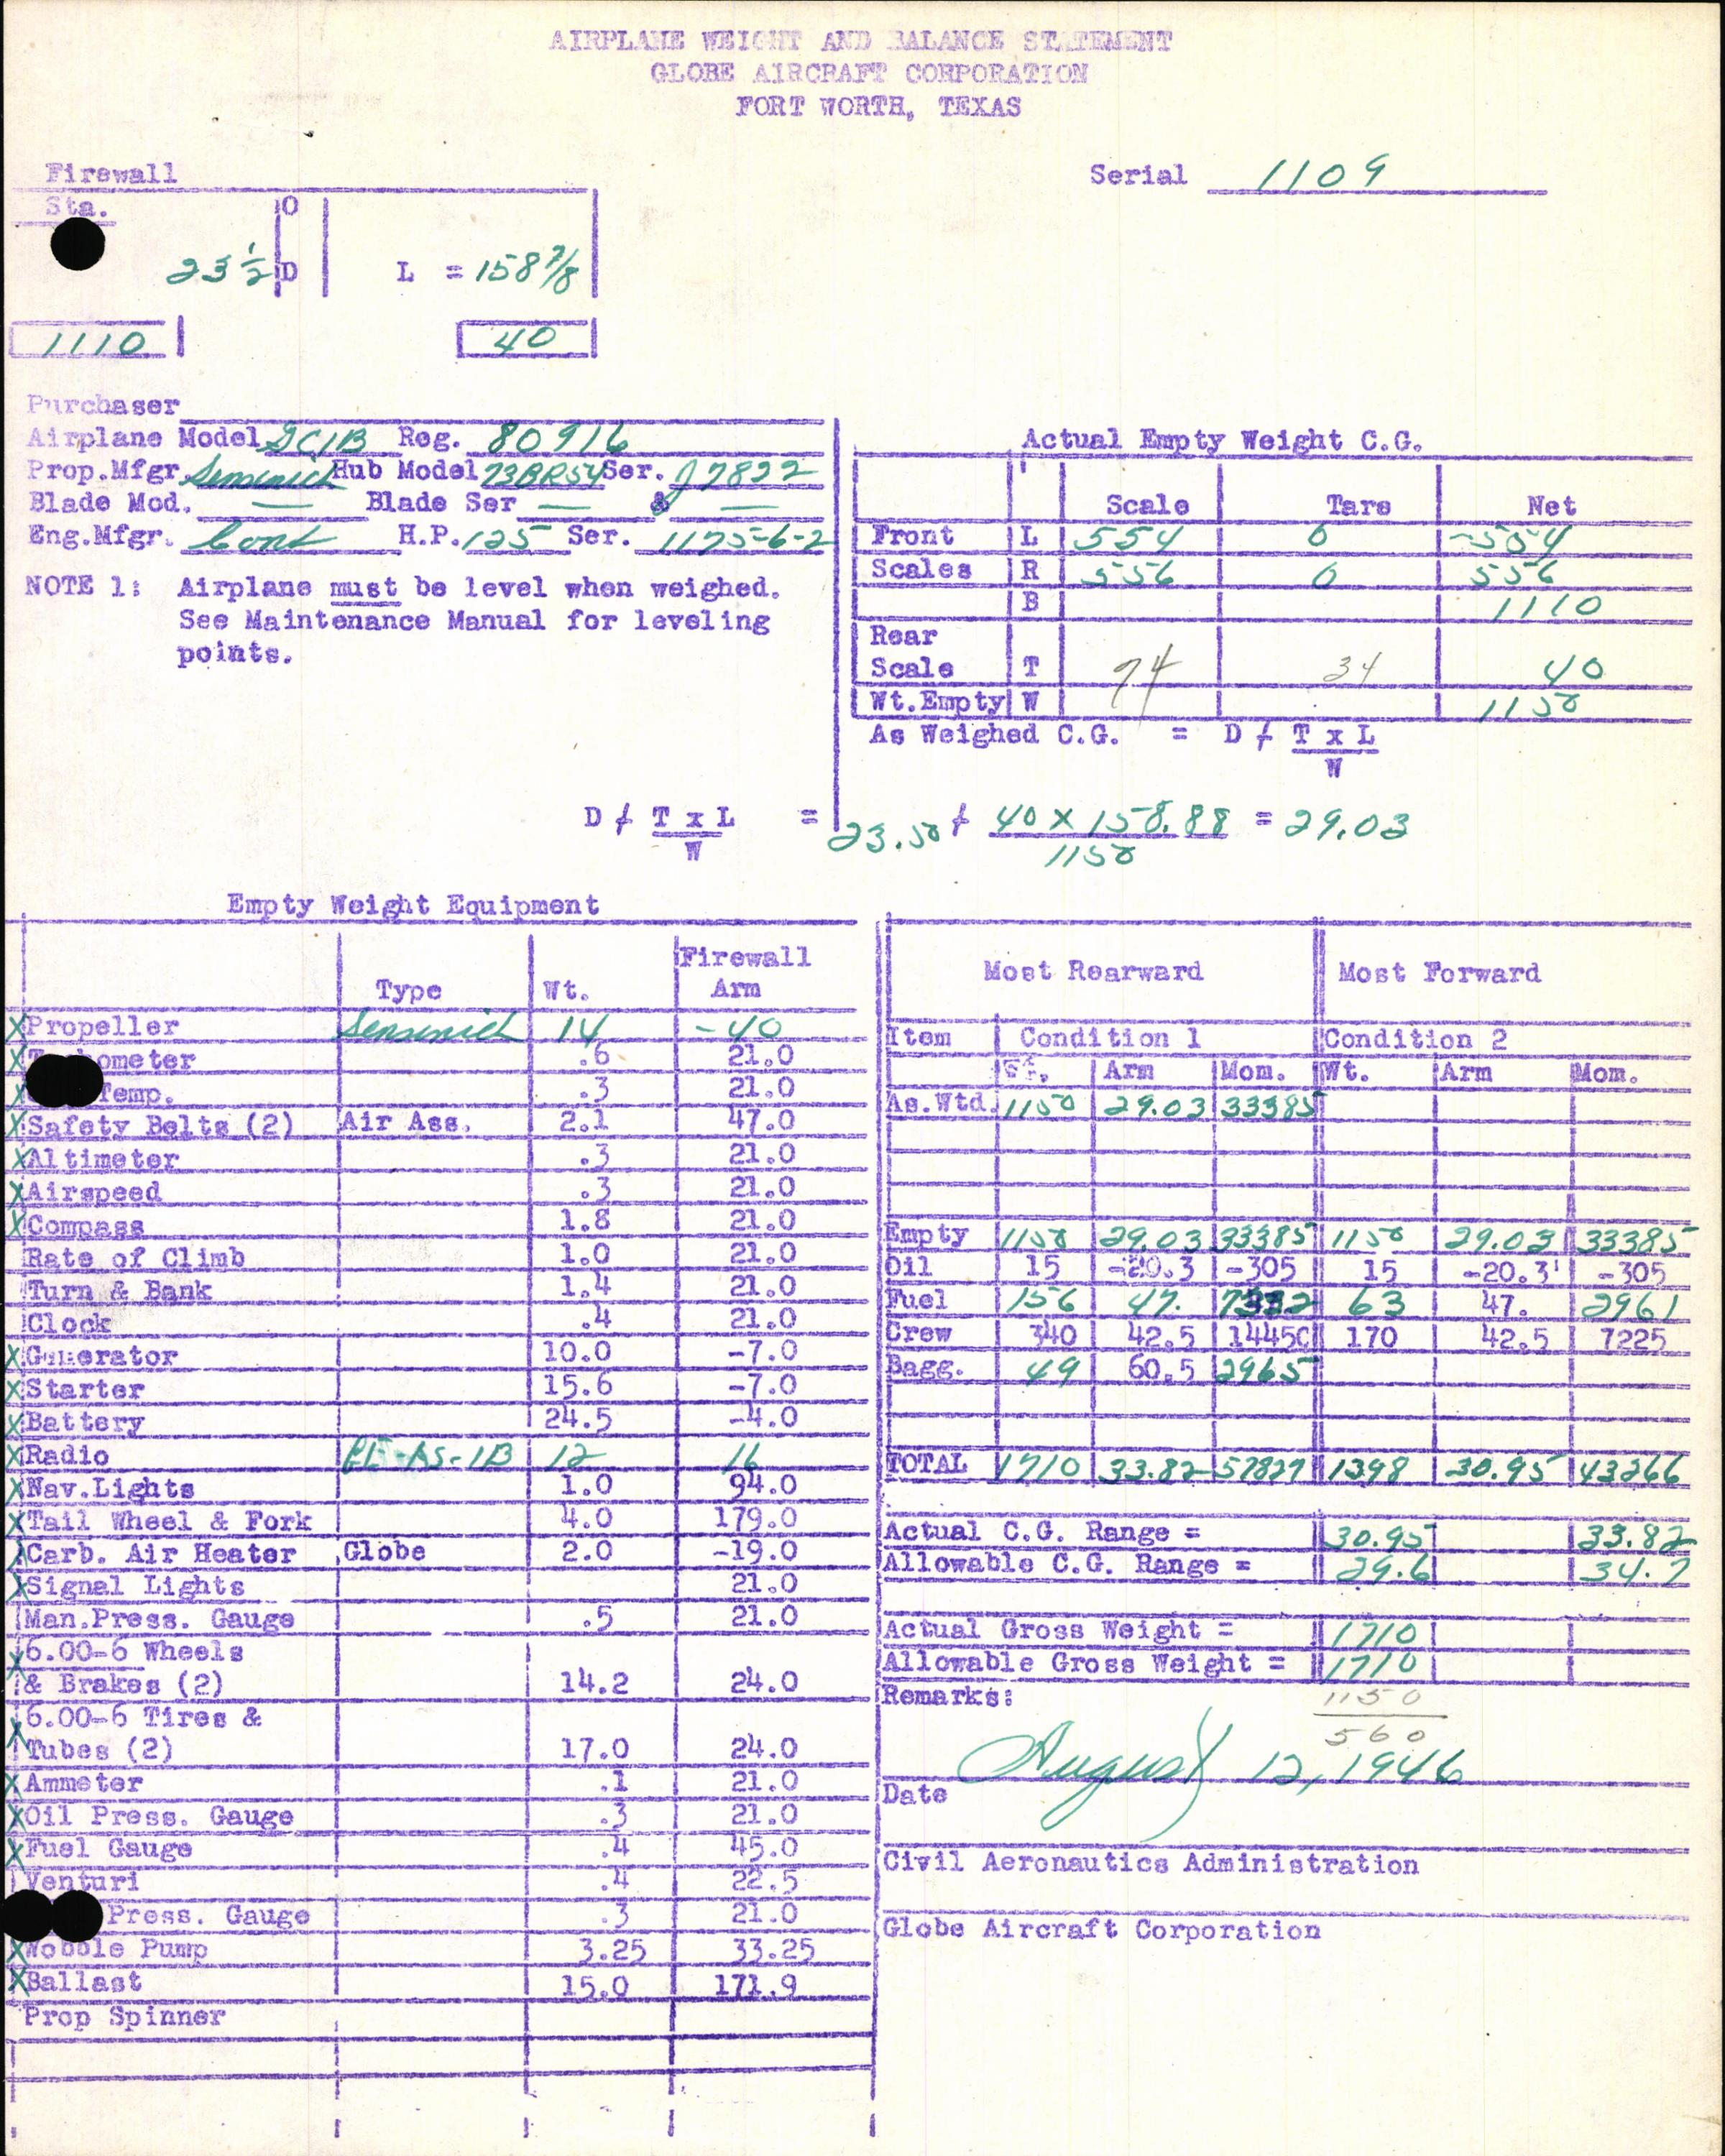 AIRPLANE WEIGHT AND BALANCE STATEMENT
GLOBE AIRCRAFT CORPORATION
FORT WORTH, TEXAS
Firewall
Serial 1109
Sta. O
23 1/2 D L = 158 7/8
1110 40
Purchaser
Airplane Model GC1B Reg. 80916
Prop.Mfgr. Sensenich Hub Model 73BR54 Ser. J7822
Blade Mod. — Blade Ser — & —
Eng.Mfgr. Cont H.P. 125 Ser. 1175-6-2
NOTE 1: Airplane must be level when weighed.
See Maintenance Manual for leveling
points.
Actual Empty Weight C.G.
Scale Tare Net
Front L 554 0 554
Scales R 556 0 556
B 1110
Rear
Scale T 74 34 40
Wt.Empty W 1150
As Weighed C.G. = D + T x L
W
D + T x L = 23.50 + 40 x 158.88 = 29.03
W 1150
Empty Weight Equipment
Type Wt. Firewall Arm
X Propeller Sensenich 14 -40
X T ometer .6 21.0
X Temp. .3 21.0
X Safety Belts (2) Air Ass. 2.1 47.0
X Altimeter .3 21.0
X Airspeed .3 21.0
X Compass 1.8 21.0
Rate of Climb 1.0 21.0
Turn & Bank 1.4 21.0
Clock .4 21.0
X Generator 10.0 -7.0
X Starter 15.6 -7.0
X Battery 24.5 -4.0
X Radio -AS-1B 12 16
X Nav.Lights 1.0 94.0
X Tail Wheel & Fork 4.0 179.0
X Carb. Air Heater Globe 2.0 -19.0
X Signal Lights 21.0
Man.Press. Gauge .5 21.0
X 6.00-6 Wheels
& Brakes (2) 14.2 24.0
X 6.00-6 Tires &
Tubes (2) 17.0 24.0
X Ammeter .1 21.0
X Oil Press. Gauge .3 21.0
X Fuel Gauge .4 45.0
Venturi .4 22.5
Press. Gauge .3 21.0
X Wobble Pump 3.25 33.25
X Ballast 15.0 171.9
Prop Spinner
Most Rearward Most Forward
Item Condition 1 Condition 2
Wt. Arm Mom. Wt. Arm Mom.
As.Wtd. 1150 29.03 33385
Empty 1150 29.03 33385 1150 29.03 33385
Oil 15 -20.3 -305 15 -20.3 -305
Fuel 156 47. 7332 63 47. 2961
Crew 340 42.5 14450 170 42.5 7225
Bagg. 49 60.5 2965
TOTAL 1710 33.82 57827 1398 30.95 43266
Actual C.G. Range = 30.95 33.82
Allowable C.G. Range = 29.6 34.7
Actual Gross Weight = 1710
Allowable Gross Weight = 1710
Remarks: 1150
560
Date August 12, 1946
Civil Aeronautics Administration
Globe Aircraft Corporation